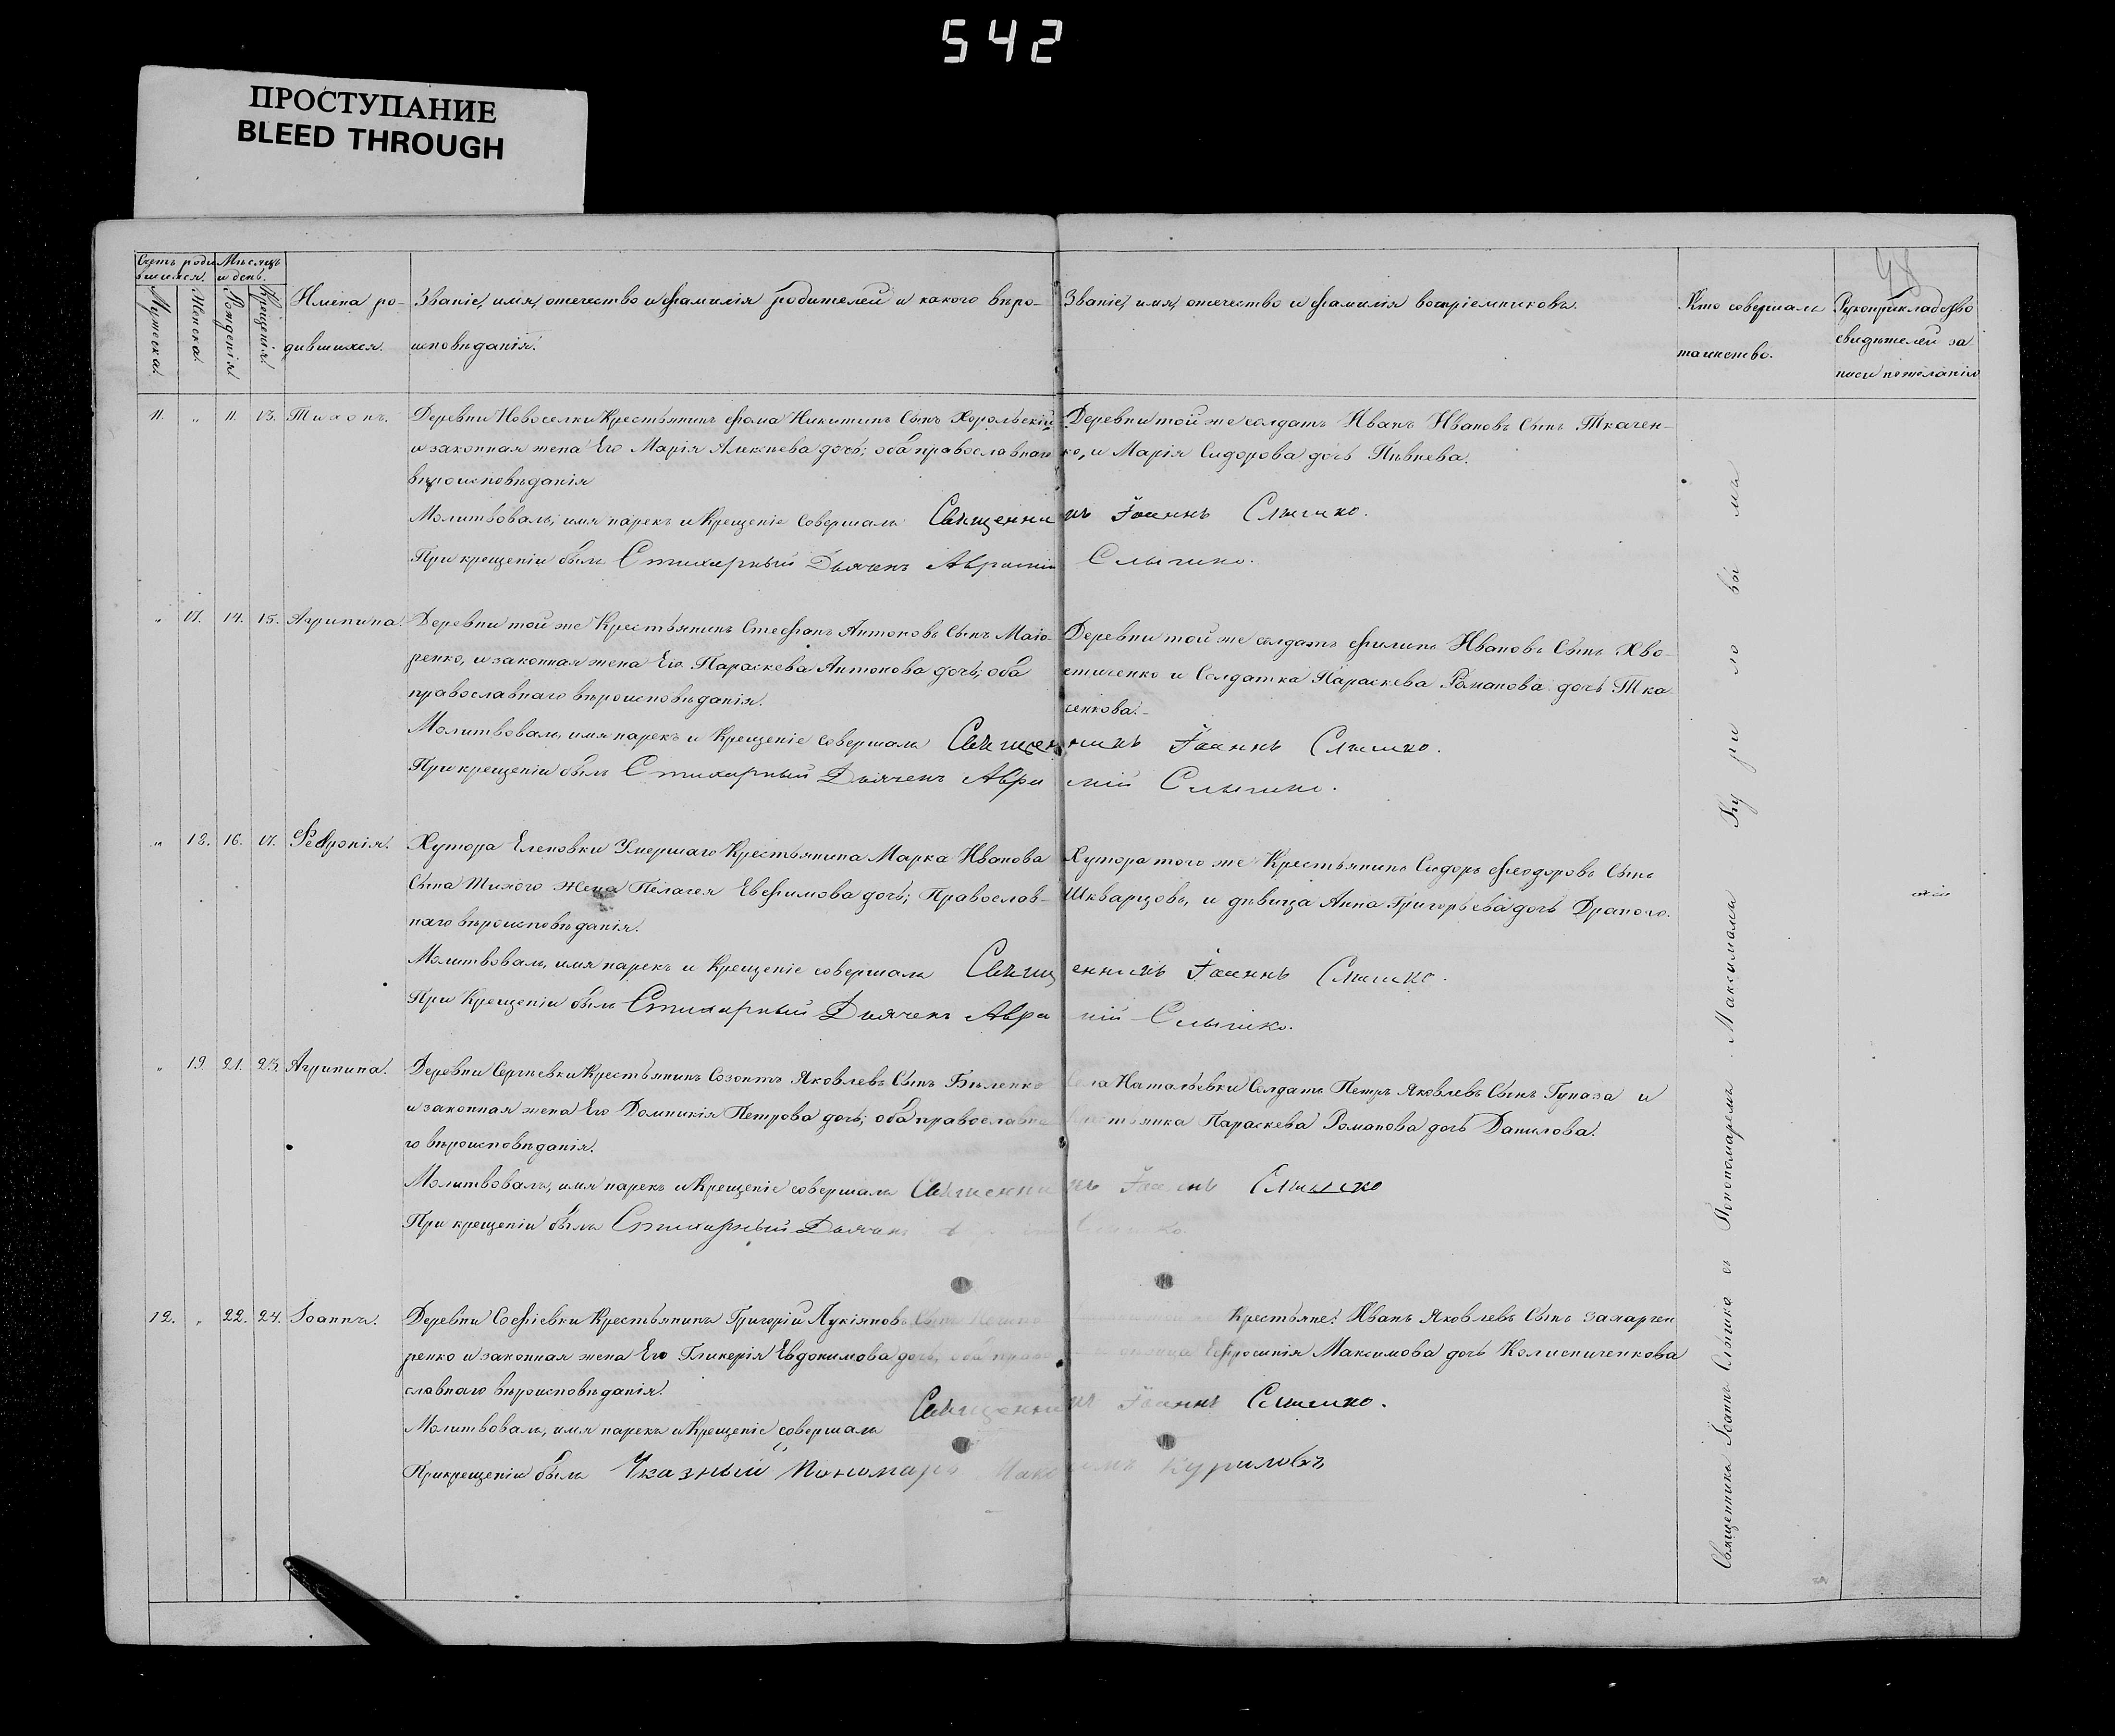 542
ПРОСТУПАНИЕ
BLEED THROUGH
Счетъ роди
вшихся.
Мѣсяцъ
и день.
Мужеска.
Женска.
Рожденія
Крещенія.
Имена ро-
дившихся.
Званіе, имя, отечество и фамилія родителей и какого вѣро-
исповѣданія.
Званіе, имя, отечество и фамилія воспріемниковъ.
Кто совершалъ
таинство.
Рукоприкладство
свидѣтелей за
писи пожеланію
11. " 11. 13. Тихонъ.
Деревни Новоселки Крестьянинъ Фома Никитинъ Сынъ Хорольскій
и законная жена Его Марія Алексѣева дочь; оба православнаго
вѣроисповѣданія
Деревни той же солдатъ Иванъ Ивановъ Сынъ Ткачен-
ко, и Марія Сидорова дочь Пѣвнева.
Молитвовалъ, имя нарекъ и Крещеніе совершалъ Священникъ Іоаннъ Слышко.
При крещеніи былъ Стихарный Дьячекъ Аврамій Слышко.
" 17. 14. 15. Агрипина.
Деревни той же Крестьянинъ Стефанъ Антоновъ Сынъ Маіо-
ренко, и законная жена Его Параскева Антонова дочь; оба
православнаго вѣроисповѣданія.
Деревни той же солдатъ Филипъ Ивановъ Сынъ Хво-
стиченко и Солдатка Параскева Романова дочь Тка-
ченкова.
Молитвовалъ, имя нарекъ и Крещеніе совершалъ Священникъ Іоаннъ Слышко.
При крещеніи былъ Стихарный Дьячекъ Аврамій Слышко.
" 18. 16. 17. Февронія.
Хутора Еленовки Умершаго Крестьянина Марка Иванова
Сына Тихого жена Пелагея Евфимова дочь; Православ-
наго вѣроисповѣданія.
Хутора того же Крестьянинъ Сидоръ Феодоровъ Сынъ
Шкварцовъ, и дѣвица Анна Григорьева дочь Драного.
Молитвовалъ, имя нарекъ и Крещеніе совершалъ Священникъ Іоаннъ Слышко.
При Крещеніи былъ Стихарный Дьячекъ Аврамій Слышко.
" 19. 21. 23. Агрипина.
Деревни Сергѣевки Крестьянинъ Созонтъ Яковлевъ Сынъ Бѣленко
и законная жена Его Домникія Петрова дочь; оба православна
го вѣроисповѣданія.
Села Натальевки Солдатъ Петръ Яковлевъ Сынъ Гуназа и
Крестьянка Параскева Романова дочь Данилова.
Молитвовалъ, имя нарекъ и Крещеніе совершалъ Священникъ Іоаннъ Слышко
При крещеніи былъ Стихарный Дьячекъ
12. " 22. 24. Іоаннъ.
Деревни Софіевки Крестьянинъ Григорій Лукіяновъ Сынъ
ренко и законная жена Его Гликерія Евдокимова дочь, оба право
славнаго вѣроисповѣданія.
Крестьяне: Иванъ Яковлевъ Сынъ Захарчен
Ефросинія Максимова дочь Колисниченкова
Молитвовалъ, имя нарекъ и Крещеніе совершалъ Священникъ Іоаннъ Слышко.
При крещеніи былъ Указный Пономарь Максимъ Куриловъ
Священникъ Іоаннъ Слышко съ Пономаремъ Максимомъ Ку ри ло вы мъ